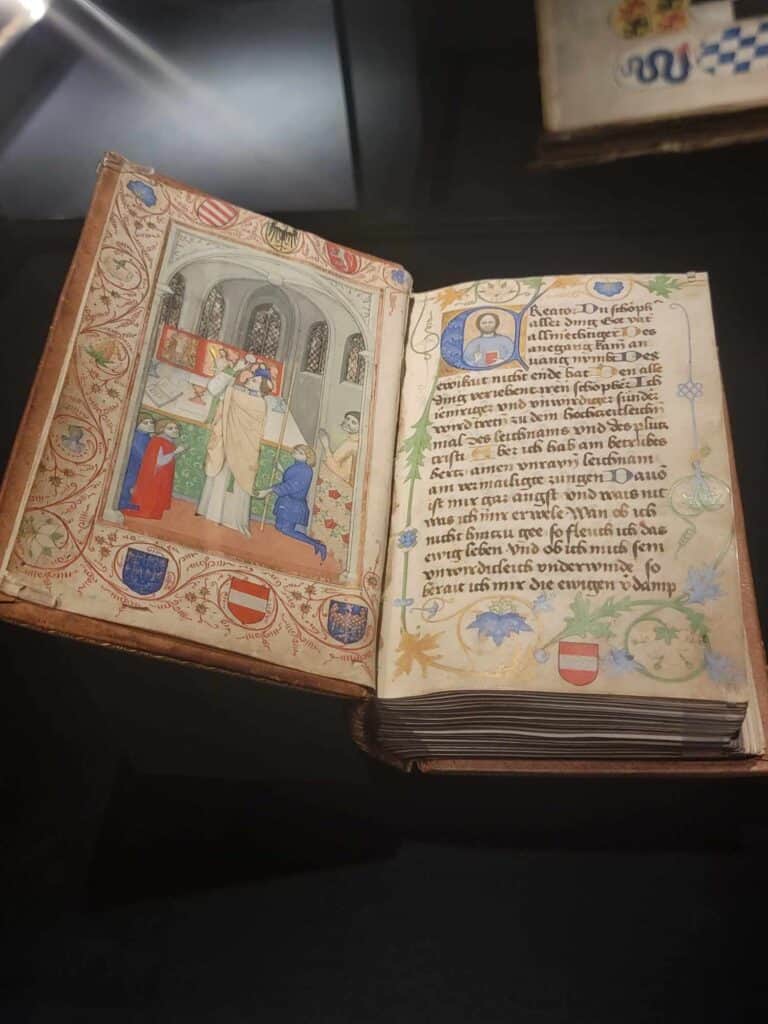 Creator Du schöph
aller ding Got vat
allmechtiger Des
anegang kam an
uang nymbt Des
ewikait nicht ende hat Den alle
ding veriehent iren schöpher Ich
ainriger und unwirdiger sunder
wird tretn zu dem hochzeitleichn
mal des leichnams und des pluts
cristi Aber ich hab am betrubts
hertz amen unrayn leichnam
am vermailigte zungen Dauo
ist mir gar angst und wais nit
was ich mir erwele Wan ob ich
nicht hintzu gee so fleuch ich das
ewig leben Und ob ich mich sein
unwirdicleich underwinde so
berait ich mir die ewigen vdamp